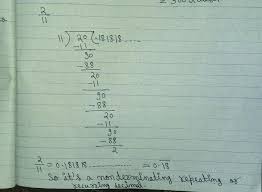 2
11
11) 20 ( .181818.....
-11
90
-88
20
-11
90
-88
20
-11
90
-88
2
2/11 = 0.181818.............. = 0.18
So it's a nonterminating repeating or
recurring decimal.